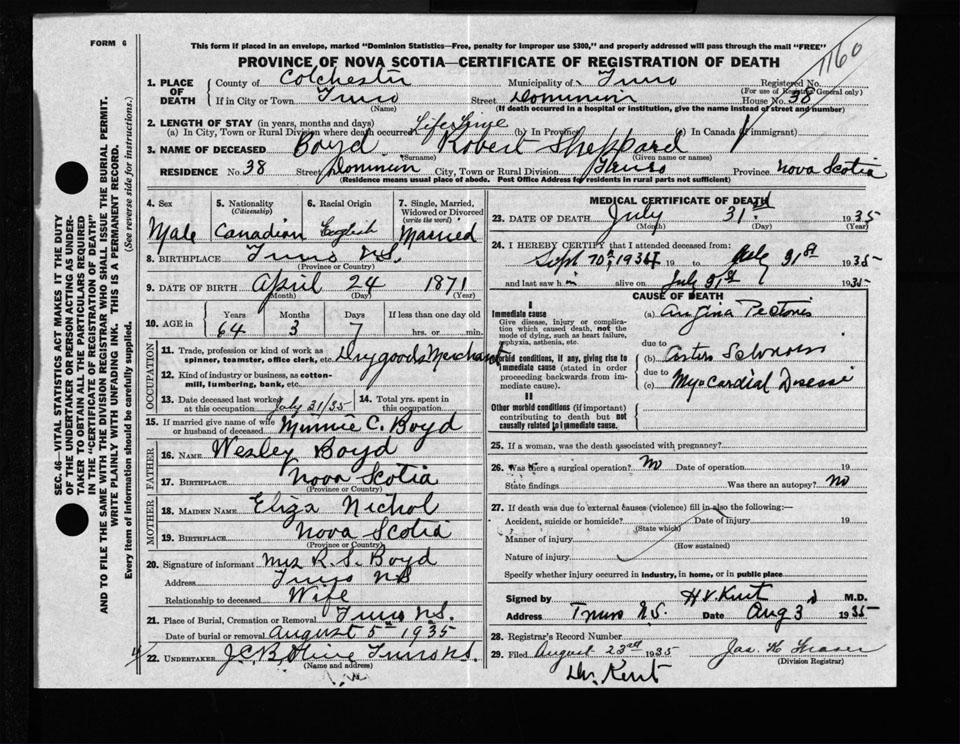 FORM 6
1160
This form if placed in an envelope, marked "Dominion Statistics—Free, penalty for improper use $300," and properly addressed will pass through the mail "FREE"
PROVINCE OF NOVA SCOTIA—CERTIFICATE OF REGISTRATION OF DEATH
1. PLACE OF DEATH County of Colchester Municipality of Truro Registered No.
(For use of Registrar General only)
If in City or Town Truro Street Dominion House No. 38
(Name) (If death occurred in a hospital or institution, give the name instead of street and number)
2. LENGTH OF STAY (in years, months and days)
(a) In City, Town or Rural Division where death occurred Life Time (b) In Province (c) In Canada (if immigrant)
3. NAME OF DECEASED Boyd Robert Sheppard
(Surname) (Given name or names)
RESIDENCE No. 38 Street Dominion City, Town or Rural Division Truro Province Nova Scotia
(Residence means usual place of abode. Post Office Address for residents in rural parts not sufficient)
4. Sex 5. Nationality (Citizenship) 6. Racial Origin 7. Single, Married, Widowed or Divorced (write the word)
Male Canadian English Married
8. BIRTHPLACE Truro N.S.
(Province or Country)
9. DATE OF BIRTH April 24 1871
(Month) (Day) (Year)
10. AGE in Years Months Days If less than one day old
64 3 7 hrs. or min.
OCCUPATION
11. Trade, profession or kind of work as spinner, teamster, office clerk, etc. Dry goods Merchant
12. Kind of industry or business, as cotton-mill, lumbering, bank, etc.
13. Date deceased last worked at this occupation July 31/35 14. Total yrs. spent in this occupation
15. If married give name of wife or husband of deceased Minnie C. Boyd
FATHER
16. NAME Wesley Boyd
17. BIRTHPLACE Nova Scotia
(Province or Country)
MOTHER
18. MAIDEN NAME Eliza Nichol
19. BIRTHPLACE Nova Scotia
(Province or Country)
20. Signature of informant Mrs R. S. Boyd
Address Truro NS
Relationship to deceased Wife
21. Place of Burial, Cremation or Removal Truro N.S.
Date of burial or removal August 5th 1935
22. UNDERTAKER J.C.B. Olive Truro N.S.
(Name and address)
MEDICAL CERTIFICATE OF DEATH
23. DATE OF DEATH July 31st 1935
(Month) (Day) (Year)
24. I HEREBY CERTIFY that I attended deceased from:
Sept 19 to July 31st 1935
and last saw him alive on July 31st 1935
CAUSE OF DEATH
I
Immediate cause (a) Angina Pectoris
Give disease, injury or complication which caused death, not the mode of dying, such as heart failure, asphyxia, asthenia, etc.
due to
Morbid conditions, if any, giving rise to immediate cause (stated in order proceeding backwards from immediate cause). (b)
due to
(c) Myocardial Disease
II
Other morbid conditions (if important) contributing to death but not causally related to immediate cause
25. If a woman, was the death associated with pregnancy?
26. Was there a surgical operation? No Date of operation 19
State findings Was there an autopsy? No
27. If death was due to external causes (violence) fill in also the following:—
Accident, suicide or homicide? Date of injury 19
(State which)
Manner of injury
(How sustained)
Nature of injury
Specify whether injury occurred in industry, in home, or in public place
Signed by H.V. Kent M.D.
Address Truro N.S. Date Aug 3 1935
28. Registrar's Record Number
29. Filed August 23rd 1935 Jas. H Fraser
(Division Registrar)
Dr. Kent
SEC. 46—VITAL STATISTICS ACT MAKES IT THE DUTY OF THE UNDERTAKER OR PERSON ACTING AS UNDERTAKER TO OBTAIN ALL THE PARTICULARS REQUIRED IN THE "CERTIFICATE OF REGISTRATION OF DEATH" AND TO FILE THE SAME WITH THE DIVISION REGISTRAR WHO SHALL ISSUE THE BURIAL PERMIT.
WRITE PLAINLY WITH UNFADING INK. THIS IS A PERMANENT RECORD.
Every item of information should be carefully supplied. (See reverse side for instructions.)